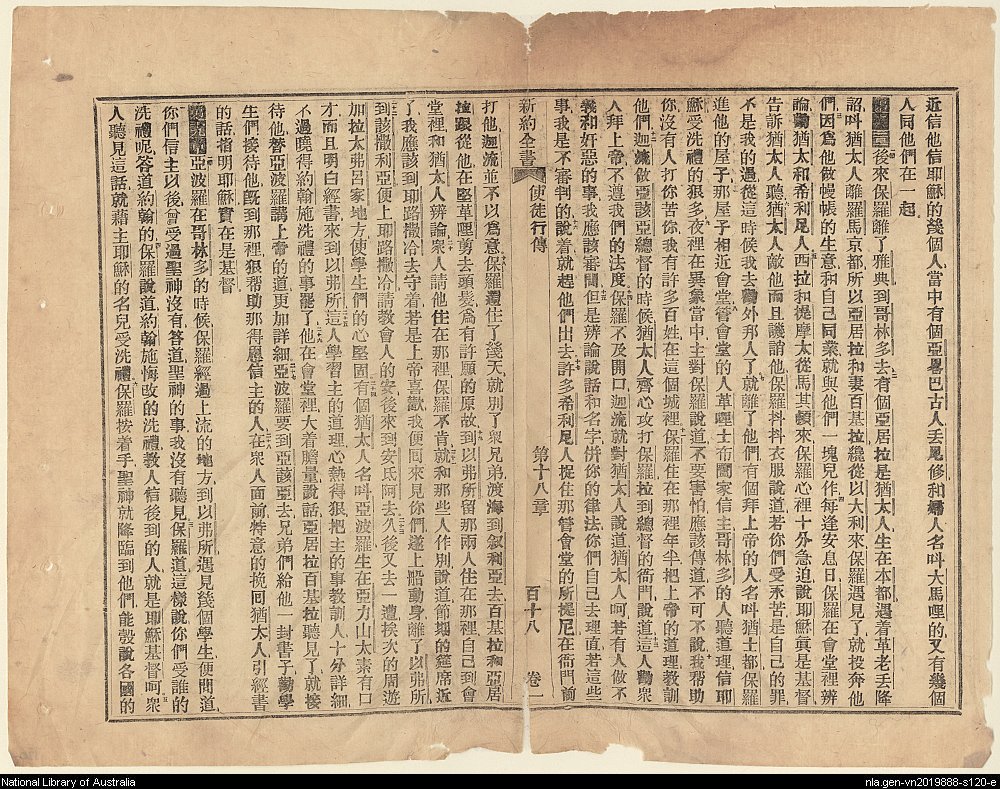 近信他信耶穌的幾個人當中有個亞畧巴古人丟尼修和婦人名叫大馬哩的又有幾個
人同他們在一起
後來保羅離了雅典到哥林多去有個亞居拉是猶太人生在本都遇着革老丟降
詔叫猶太人離羅馬京都所以亞居拉和妻百基拉纔從以大利來保羅遇見了就投奔他
們因爲他做幔帳的生意和自己同業就與他們一塊兒作每逢安息日保羅在會堂裡辨
論勸猶太和希利尼人西拉和提摩太從馬其頓來保羅心裡十分急迫說耶穌眞是基督
告訴猶太人聽猶太人敵他而且譏誚他保羅抖抖衣服說道若你們受永苦是自己的罪
不是我的過從這時候我去勸外邦人了就離了他們有個拜上帝的人名叫猶士都保羅
進他的屋子那屋子相近會堂管會堂的人革哩士布闔家信主哥林多的人聽道理信耶
穌受洗禮的狠多夜裡在異象當中主對保羅說道不要害怕應該傳道不可不說我帮助
你沒有人打你苦你我有許多百姓在這個城裡保羅住在那裡年半把上帝的道理教訓
他們迦流做亞該亞總督的時候猶太人齊心攻打保羅拉到總督的衙門說道這人勸衆
人拜上帝不遵我們的法度保羅不及開口迦流就對猶太人說道猶太人呵若有人做不
義和奸惡的事我應該審問但是辨論說話和名字併你的律法你們自己去理直若這些
事我是不審判的說着就趕他們出去許多希利尼人捉住那管會堂的所提尼在衙門前
新約全書 使徒行傳 第十八章 百十八 卷一
打他迦流並不以爲意保羅還住了幾天就別了衆兄弟渡海到叙利亞去百基拉和亞居
拉跟從他在堅革哩剪去頭髮爲有許願的原故到以弗所留那兩人住在那裡自己到會
堂裡和猶太人辨論衆人請他住在那裡保羅不肯就和那些人作別說道節期的筵席近
了我應該到耶路撒冷去守着若是上帝喜歡我便回來見你們遂上船動身離了以弗所
到該撒利亞便上耶路撒冷請教會人的安後來到安氐阿去久後又去一遭挨次的周遊
加拉太弗呂家地方使學生們的心堅固有個猶太人名叫亞波羅生在亞力山太素有口
才而且明白經書來到以弗所這人學習主的道理心熱得狠把主的事教訓人十分詳細
不過曉得約翰施洗禮的事罷了他在會堂裡大着膽量說話亞居拉百基拉聽見了就接
待他替亞波羅講上帝的道更加詳細亞波羅要到亞該亞去兄弟們給他一封書子勸學
生們接待他旣到那裡狠帮助那得恩信主的人在衆人面前特意的挽回猶太人引經書
的話指明耶穌實在是基督
亞波羅在哥林多的時候保羅經過上流的地方到以弗所遇見幾個學生便問道
你們信主以後曾受過聖神沒有答道聖神的事我沒有聽見保羅道這樣說你們受誰的
洗禮呢答道約翰的保羅說道約翰施悔改的洗禮教人信後到的人就是耶穌基督呵衆
人聽見這話就藉主耶穌的名兒受洗禮保羅按着手聖神就降臨到他們能彀說各國的
National Library of Australia
nla.gen-vn2019888-s120-e